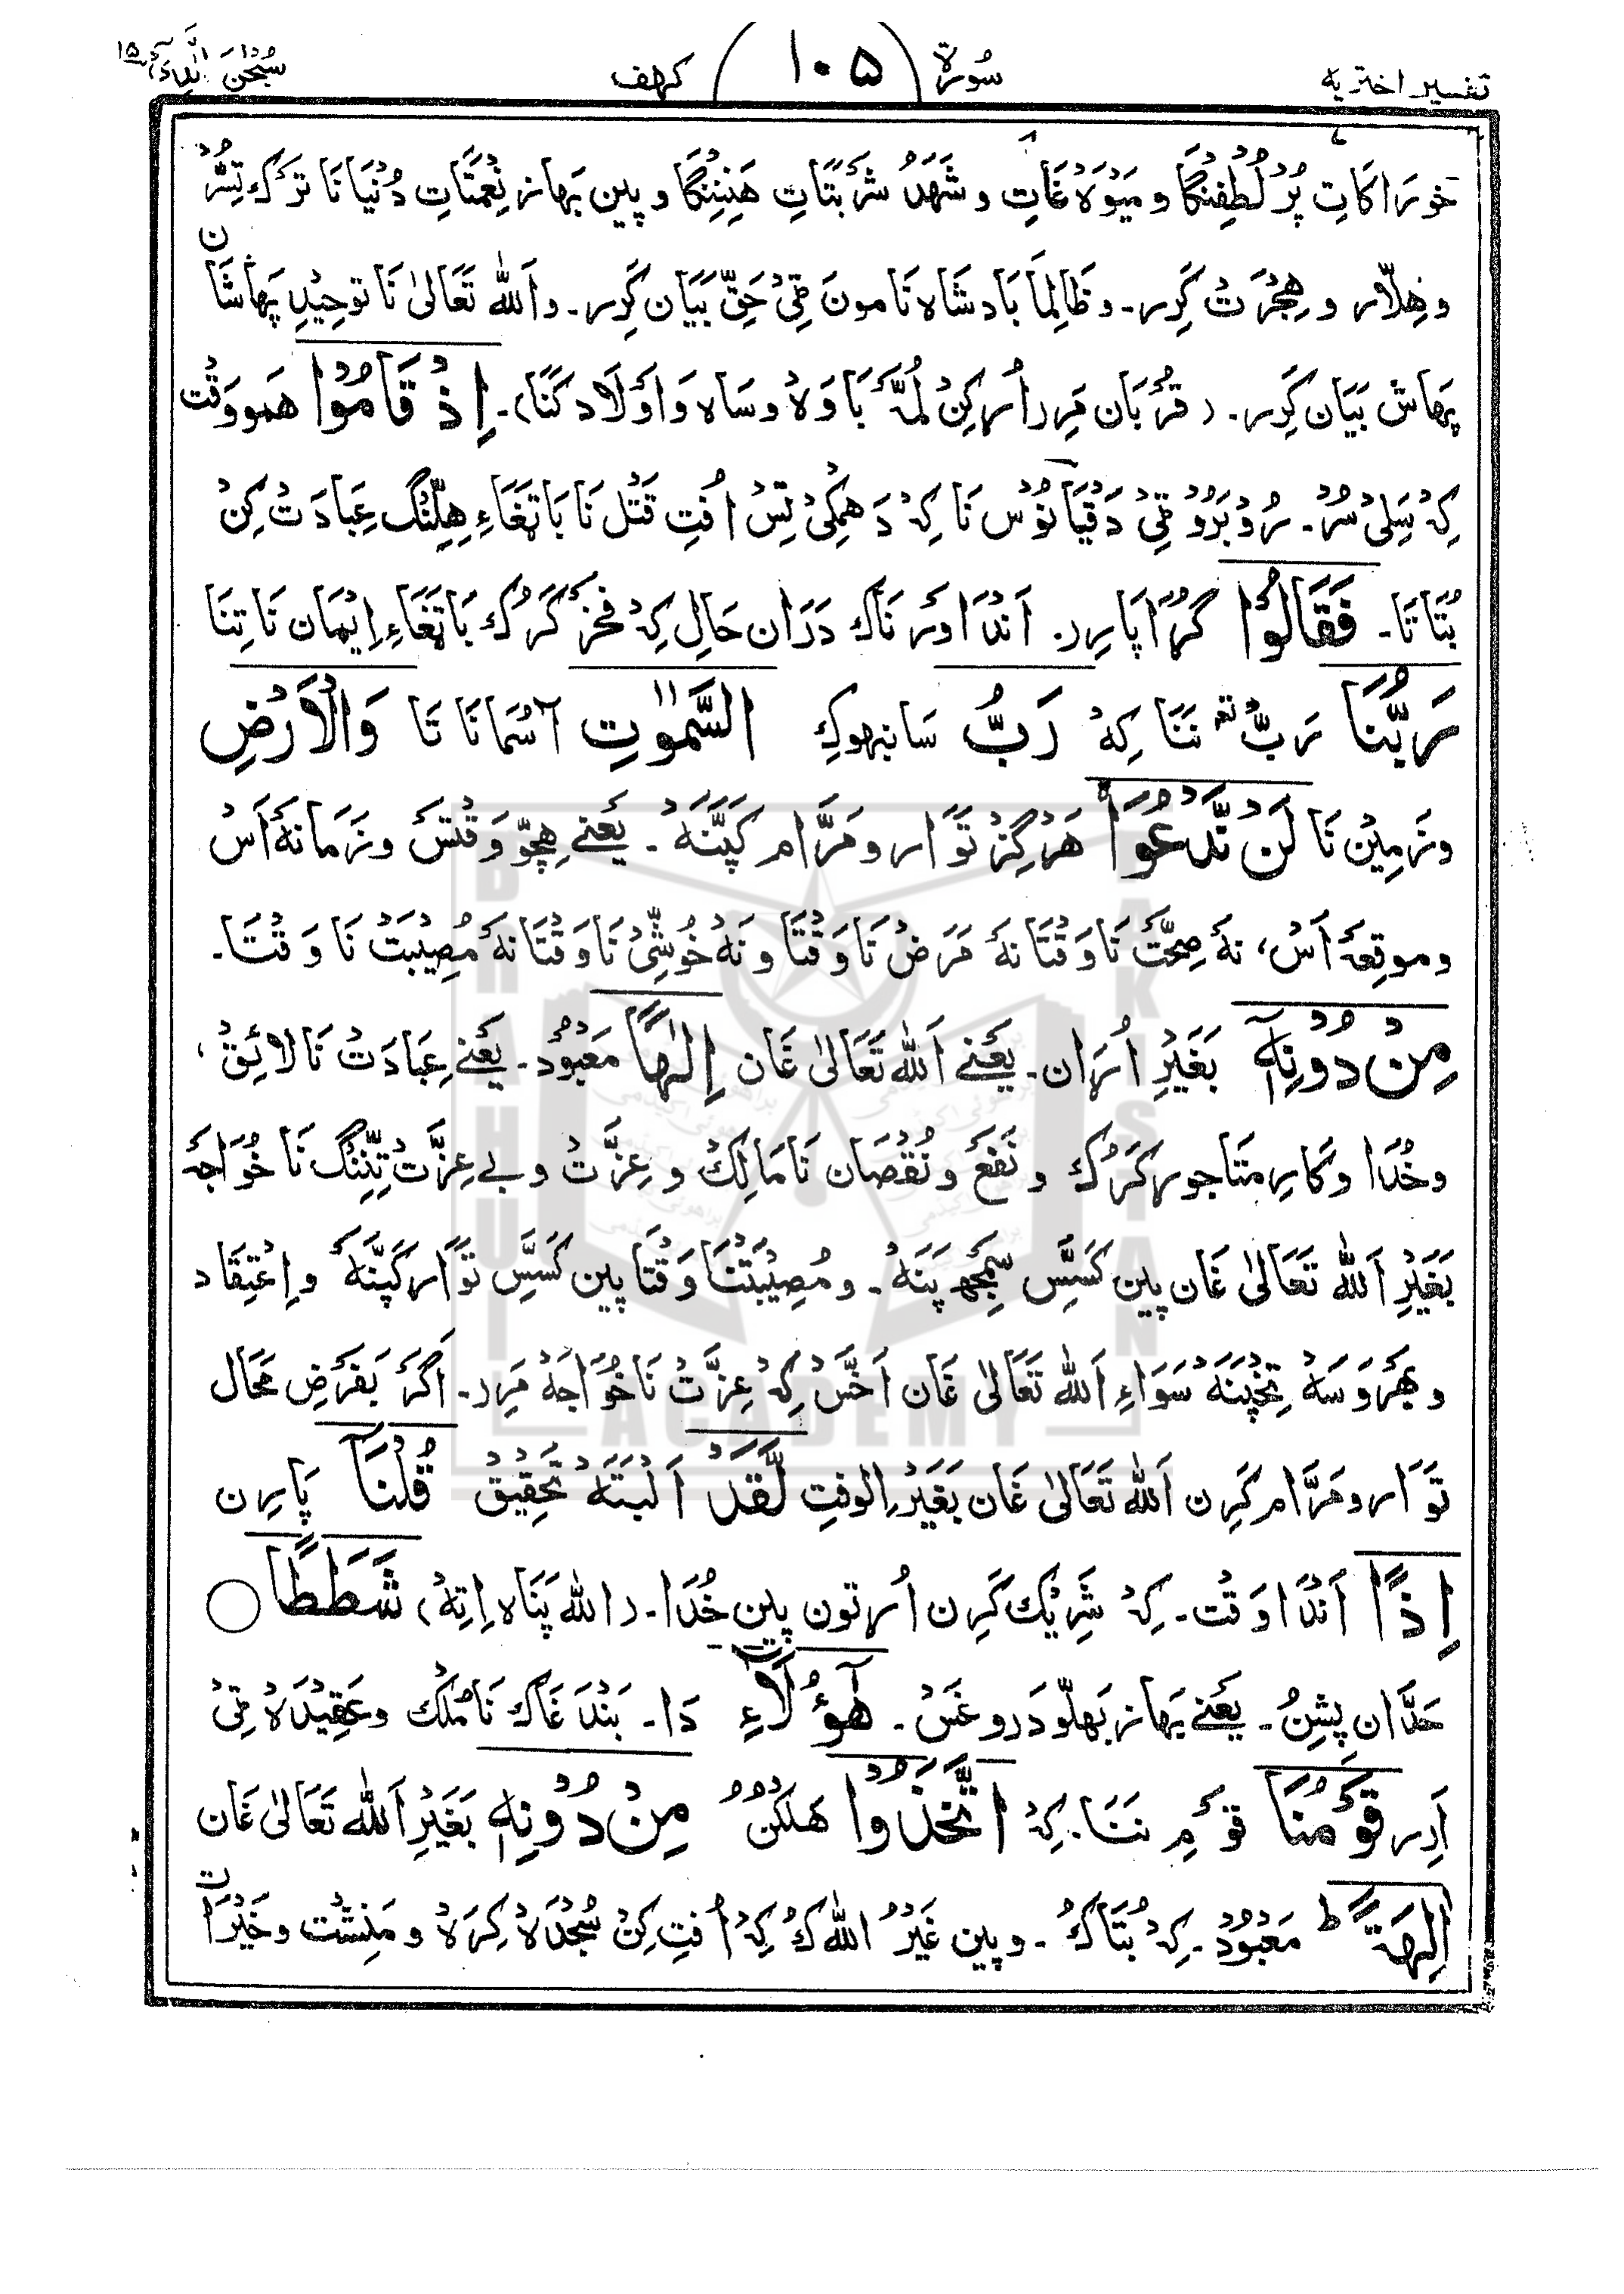 تفسیر اختریه سُورة ( ۱۰۵ ) کهف سُبْحٰنَ الَّذِیْٓ ۱۵
خورَاکَاتِ پُرْ لُطْفِنْگَا و مَیْوَهْ غَاتِ و شَهَدُ شَرْبَتَاتِ هَنِنِنْگَا و پین بَهاز نِعْمَتَاتِ دُنْیَا نَا تَرْک تِسُّرْ
و هِلَّار و هِجْرَتْ کَرِر۔ و ظَالِمَا بَادشَاه نَا مون ٹِیْ حَقِّ بَیَان کَرِر۔ و اَللّٰه تَعَالیٰ نَا توحِیْدِ پَهاشَان
پَهاش بَیَان کَرِر۔ (قُرْبَان مَرِر اُرکِنْ لُمَّه بَاوَهْ و سَاه وَ اَوْلَاد کَنَا)۔ اِذْ قَامُوْا هَمو وَقْت
کِهْ سَلِیْ سُرْ۔ رُوْبَرُوْ ٹِیْ دَقْیَانُوْس نَا کِهْ دَهمْکِیْ تِسْ اُفْتِ قَتْل نَا بَاتَغَاءِ هِلِّنْگ عِبَادَتْ کِنْ
بُتَاتَا۔ فَقَالُوْا گُرَا پَارِر۔ اَنْدَا وَرْنَاک دَرَان حَالِ کِهْ فَخْر کَرُک بَاتَغَاءِ اِیْمَان نَا تِنَا
رَبُّنَا رَبّ نَنَا کِهْ رَبُّ سَانبهوکِ السَّمٰوٰتِ آسْمَانَا تَا وَالْاَرْضِ
و زَمِیْن نَا لَنْ نَّدْعُوَا هَرْگِزْ تَوَّار و مَرَّام کَپَّنَهْ۔ یَعْنِے هِچُّو وَقْتَسْ و زَمَانَهٔ اَسْ
و موقِعَهٔ اَسْ، نَه صِحَّتْ نَا وَقْتَا نَه مَرَضْ نَا وَقْتَا و نَهْ خُوْشِّیْ نَا وَقْتَا نَه مُصِیْبَتْ نَا وَقْتَا۔
مِنْ دُوْنِهٖٓ بَغَیْرِ اُرَان۔ یَعْنِے اَللّٰه تَعَالیٰ غَان اِلٰهًا مَعْبُوْد۔ یَعْنِے عِبَادَتْ نَا لائِقْ،
و خُدَا و کَارِمتَا جور کَرُک و نَفَع و نُقْصَان نَا مَالِکْ و عِزَّتْ و بے عِزَّتْ تِنِّنْگ نَا خُوَاجَه
بَغَیْرِ اَللّٰه تَعَالیٰ غَان پین کَسَّسِ سَمِجْهِ پَنَهْ۔ و مُصِیْبَتْنَا وَقْتَا پین کَسَّسِ تَوَّار کَپَّنَهْ و اِعْتِقَاد
و بَهرَوسَهْ تِخْپَنَهْ سَوَاءِ اَللّٰه تَعَالیٰ غَان اَخَّسْ کِهْ عِزَّتْ نَا خُوَاجَهْ مَرِر۔ اَگَر بَفَرْضِ مَحَال
تَوَّار و مَرَّام کَرِن اَللّٰه تَعَالیٰ غَان بَغَیْر الوفتِ لَّقَدْ اَلْبَتَّهْ تَحْقِیْقْ قُلْنَآ پَارِن
اِذًا اَنْدَا وَقْت۔ کِهْ شَرِیْک کَرِن اُرتون پین خُدَا۔ (اللّٰه پَنَاه اِتِهْ) شَطَطًا ○
حَدَّان پِشِنْ۔ یَعْنِے بَهاز بَهلّو دَروغَسْ۔ هٰٓؤُلَآءِ دَا۔ بَنْدَغَاک نَا مُلْک و عَقِیْدَهْ ٹِیْ
اَرِر قَوْمُنَا قَوْمِ نَنَا۔ کِهْ اتَّخَذُوْا هَلْکُنْ مِنْ دُوْنِهٖٓ بَغَیْرِ اَللّٰه تَعَالیٰ غَان
اٰلِهَةً ط مَعْبُوْد۔ کِهْ بُتَاکُ۔ و پین غَیْرُ اللّٰه کُ کِهْ اُفْتِ کِنْ سُجْدَهْ کِرَهْ و مَنِشْت و خَیْرَات
BRAHUI
ACADEMY
PAKISTAN